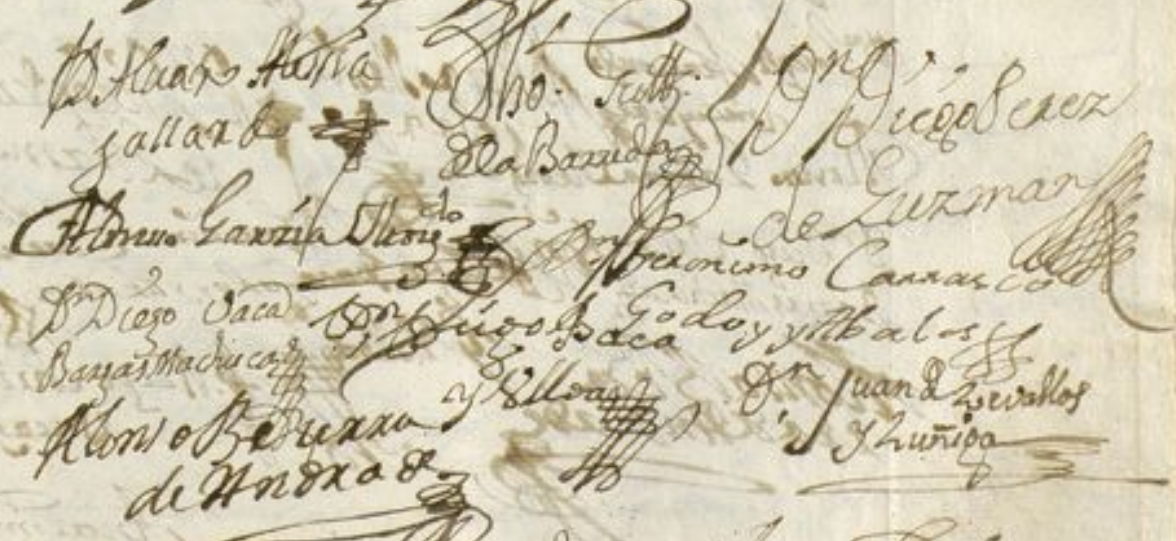 D. Aluaro
gallardo
dela Barreda
Dn Diego Perez
de Guzman
Alonso Garzia
Dn Geronimo Carrasco
Godoy y
Dn Diego Vaca
Bargas Machuca
Dn Diego Baca
y Ulloa
Dn Juan de Zevallos
y Zuñiga
Alonso Bezerra
de Andrade